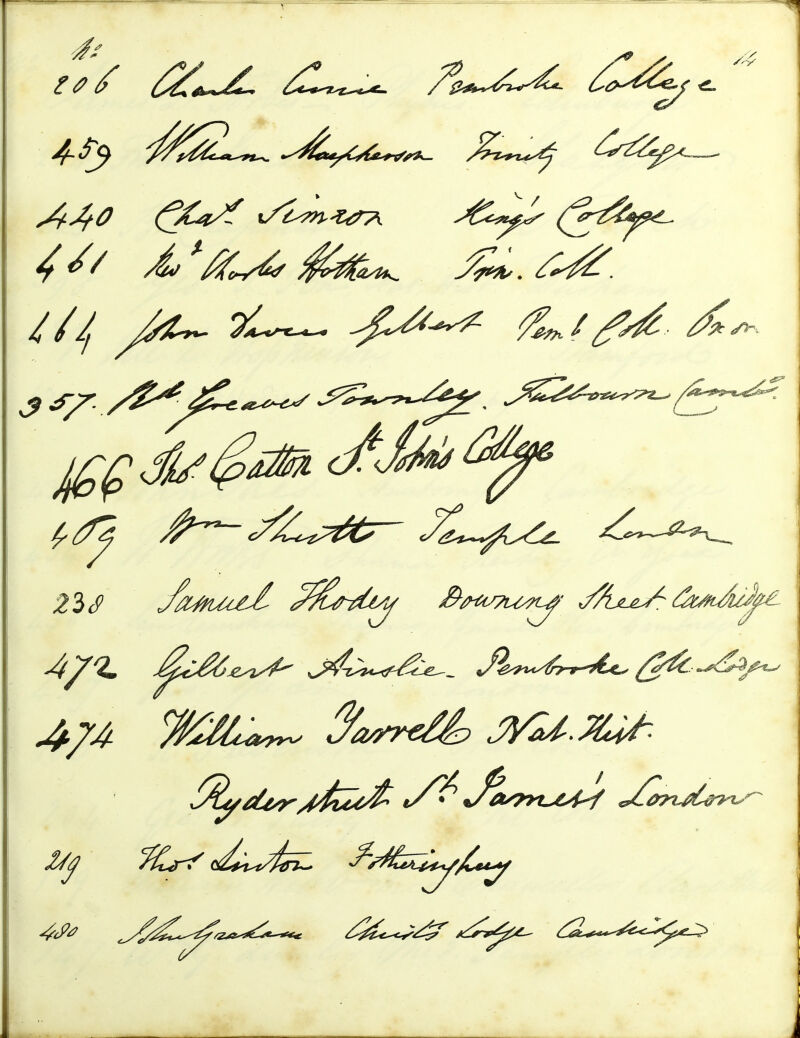 No 14
206 Charles Currie Pembroke College
459 William Macpherson Trinity College
440 Chas. Simeon King's College
461 Revd Charles Hotham Trin. Coll.
464 John Davies Gilbert Pemb. Coll. Oxon
357. Rd. Greaves Townley. Fulbourn Cambs.
466 Thos. Catton St. John's College
469 Wm Temple London
238 Samuel Thodey Downing Street. Cambridge
472 Gilbert Ainslie - Pembroke Coll. Lodge
474 William Yarrell Nat. Hist.
Ryder street St. James's London
219 Thos. Linton Fotheringhay
480 John Graham Christ's Lodge Cambridge